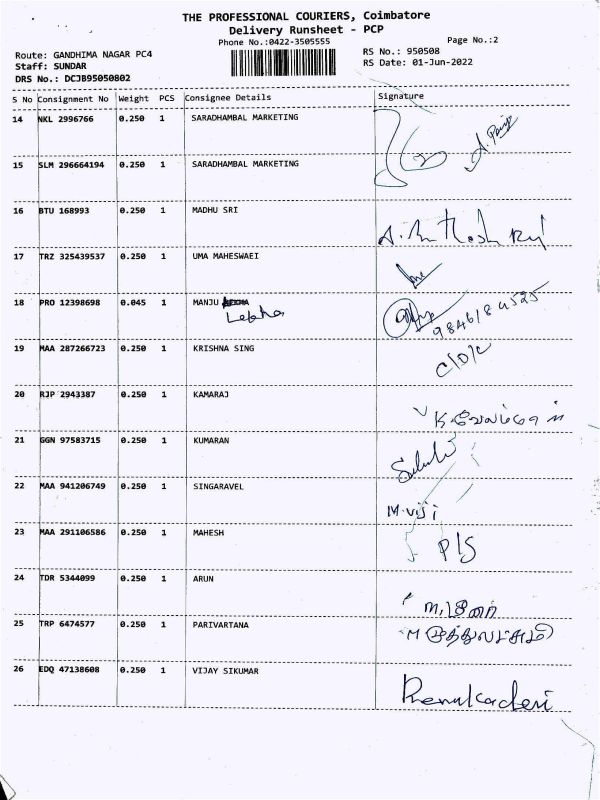 THE PROFESSIONAL COURIERS, Coimbatore
Delivery Runsheet - PCP
Phone No.:0422-3505555
Page No.:2
Route: GANDHIMA NAGAR PC4
RS No.: 950508
Staff: SUNDAR
RS Date: 01-Jun-2022
DRS No.: DCJB95050802
S No Consignment No Weight PCS Consignee Details Signature
14 NKL 2996766 0.250 1 SARADHAMBAL MARKETING
15 SLM 296664194 0.250 1 SARADHAMBAL MARKETING
16 BTU 168993 0.250 1 MADHU SRI
17 TRZ 325439537 0.250 1 UMA MAHESWAEI
18 PRO 12398698 0.045 1 MANJU
Lekha
19 MAA 287266723 0.250 1 KRISHNA SING
C/O/C
20 RJP 2943387 0.250 1 KAMARAJ
21 GGN 97583715 0.250 1 KUMARAN
22 MAA 941206749 0.250 1 SINGARAVEL M.viji
23 MAA 291106586 0.250 1 MAHESH P/S
24 TDR 5344099 0.250 1 ARUN
25 TRP 6474577 0.250 1 PARIVARTANA M முத்துலட்சுமி
26 EDQ 47138608 0.250 1 VIJAY SIKUMAR Renukaderi